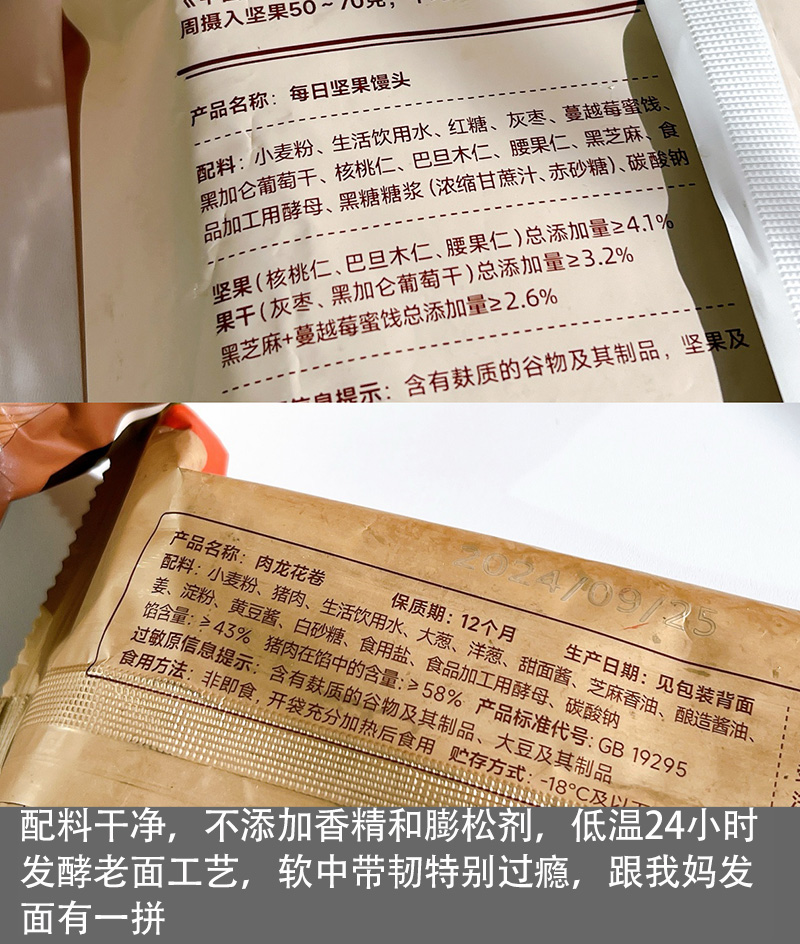 周摄入坚果50~70克，
产品名称：每日坚果馒头
配料：小麦粉、生活饮用水、红糖、灰枣、蔓越莓蜜饯、
黑加仑葡萄干、核桃仁、巴旦木仁、腰果仁、黑芝麻、食
品加工用酵母、黑糖糖浆（浓缩甘蔗汁、赤砂糖）、碳酸钠
坚果（核桃仁、巴旦木仁、腰果仁）总添加量≥4.1%
果干（灰枣、黑加仑葡萄干）总添加量≥3.2%
黑芝麻+蔓越莓蜜饯总添加量≥2.6%
信息提示：含有麸质的谷物及其制品，坚果及
2024/09/25
产品名称：肉龙花卷 保质期：12个月 生产日期：见包装背面
配料：小麦粉、猪肉、生活饮用水、大葱、洋葱、甜面酱、芝麻香油、酿造酱油、
姜、淀粉、黄豆酱、白砂糖、食用盐、食品加工用酵母、碳酸钠
馅含量：≥43% 猪肉在馅中的含量：≥58% 产品标准代号：GB 19295
过敏原信息提示：含有麸质的谷物及其制品、大豆及其制品
食用方法：非即食，开袋充分加热后食用 贮存方式：-18°C及以下
配料干净，不添加香精和膨松剂，低温24小时
发酵老面工艺，软中带韧特别过瘾，跟我妈发
面有一拼